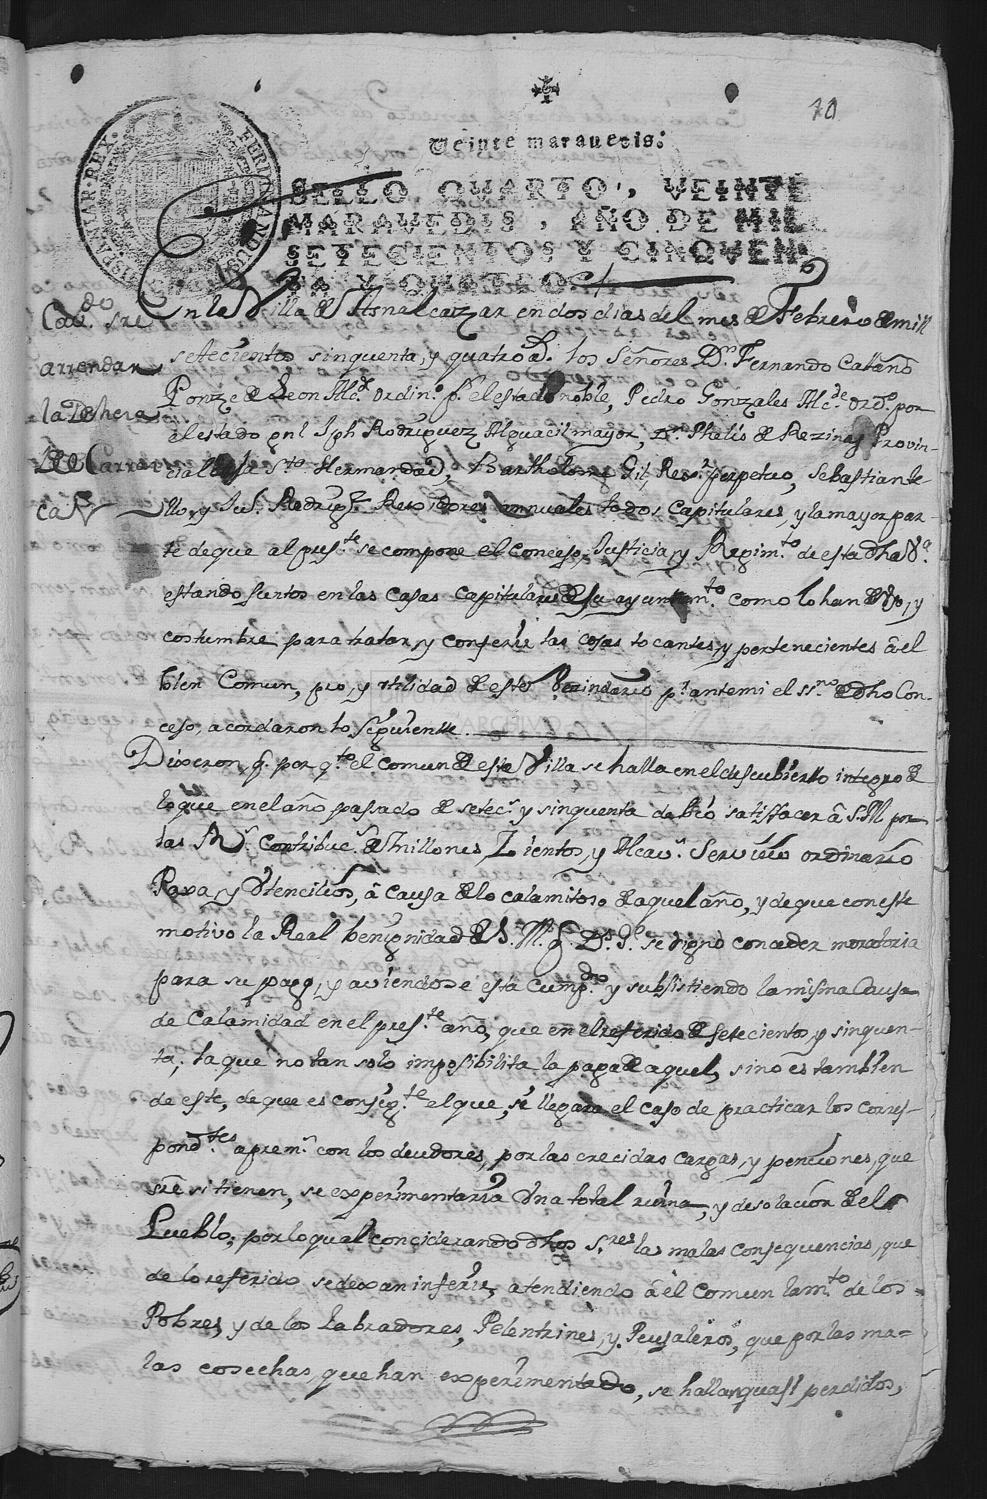 10
Veinte maravedis.
SELLO QUARTO, VEINTE
MARAVEDIS, AÑO DE MIL
SETECIENTOS Y CINQUEN
TA Y QUATRO.
HISPANIAR. REX. FERDINANDUS
Cavdo. sre
arrendar
la Dehesa
de Carras
ca
En la Villa de Hinalcazar en dos dias del mes de Febrero de mill
setecientos sinquenta, y quatro as. los Señores Dn. Fernando Cataño
Ponze de Leon Alce. ordino. pr. el estado noble, Pedro Gonzales Alcde. ordo. por
el estado gnl Jph Rodriguez Alguacil mayor, Dn. Phelis de Rezina Provin-
cial de la Sta. Hermandad, Bartholome Gil, Rexor. perpetuo, Sebastian te-
llo, y Juo. Rodrigz. Rexidores annuales todos Capitulares, y la mayor par-
te de que al preste. se compone el Concejo, Justicia, y Regimto. de esta dha Va.
estando juntos en las casas capitulares de su ayuntamto. como lo han de uso, y
costumbre para tratar, y conferir las cosas tocantes, y pertenecientes â el
bien Comun, pro, y utilidad de este Vezindario pr. ante mi el ssno. de dho Con-
cejo, acordaron lo siguiente.
Dixeron q. por qto. el comun de esta Villa se halla en el descubierto integro de
lo que en el año passado de setecs. y sinquenta debió satisfacer â S.M por
las Rs. Contribucs. de Millones, Zientos, y Alcavs. Servicio ordinario
Paxa, y Utencilios, â causa de lo calamitoso de aquel año, y de que con este
motivo la Real benignidad de S. M. q. Ds. ge. se digno conceder moratoria
para su pago, y aviendose esta cumpdo. y subsistiendo la misma Causa
de Calamidad en el preste. año, que en el referido de setecientos, y sinquen-
ta; la que no tan solo imposibilita la paga de aquel, sino es tambien
de este, de que es consigte. el que, si llegara el caso de practicar los corres-
pondtes. apremos. con los deudores, por las crecidas cargas, y penciones, que
sre si tienen, se experimentaria una total ruina, y desolacion de el
Pueblo; por lo qual conciderando dhos sres. las malas consequencias, que
de lo referido se dexan inferir, atendiendo â el Comun lamto. de los
Pobres, y de los Labradores, Pelentrines, y Peujaleros, que por las ma-
las cosechas, que han experimentado, se hallan quasi perdidos,